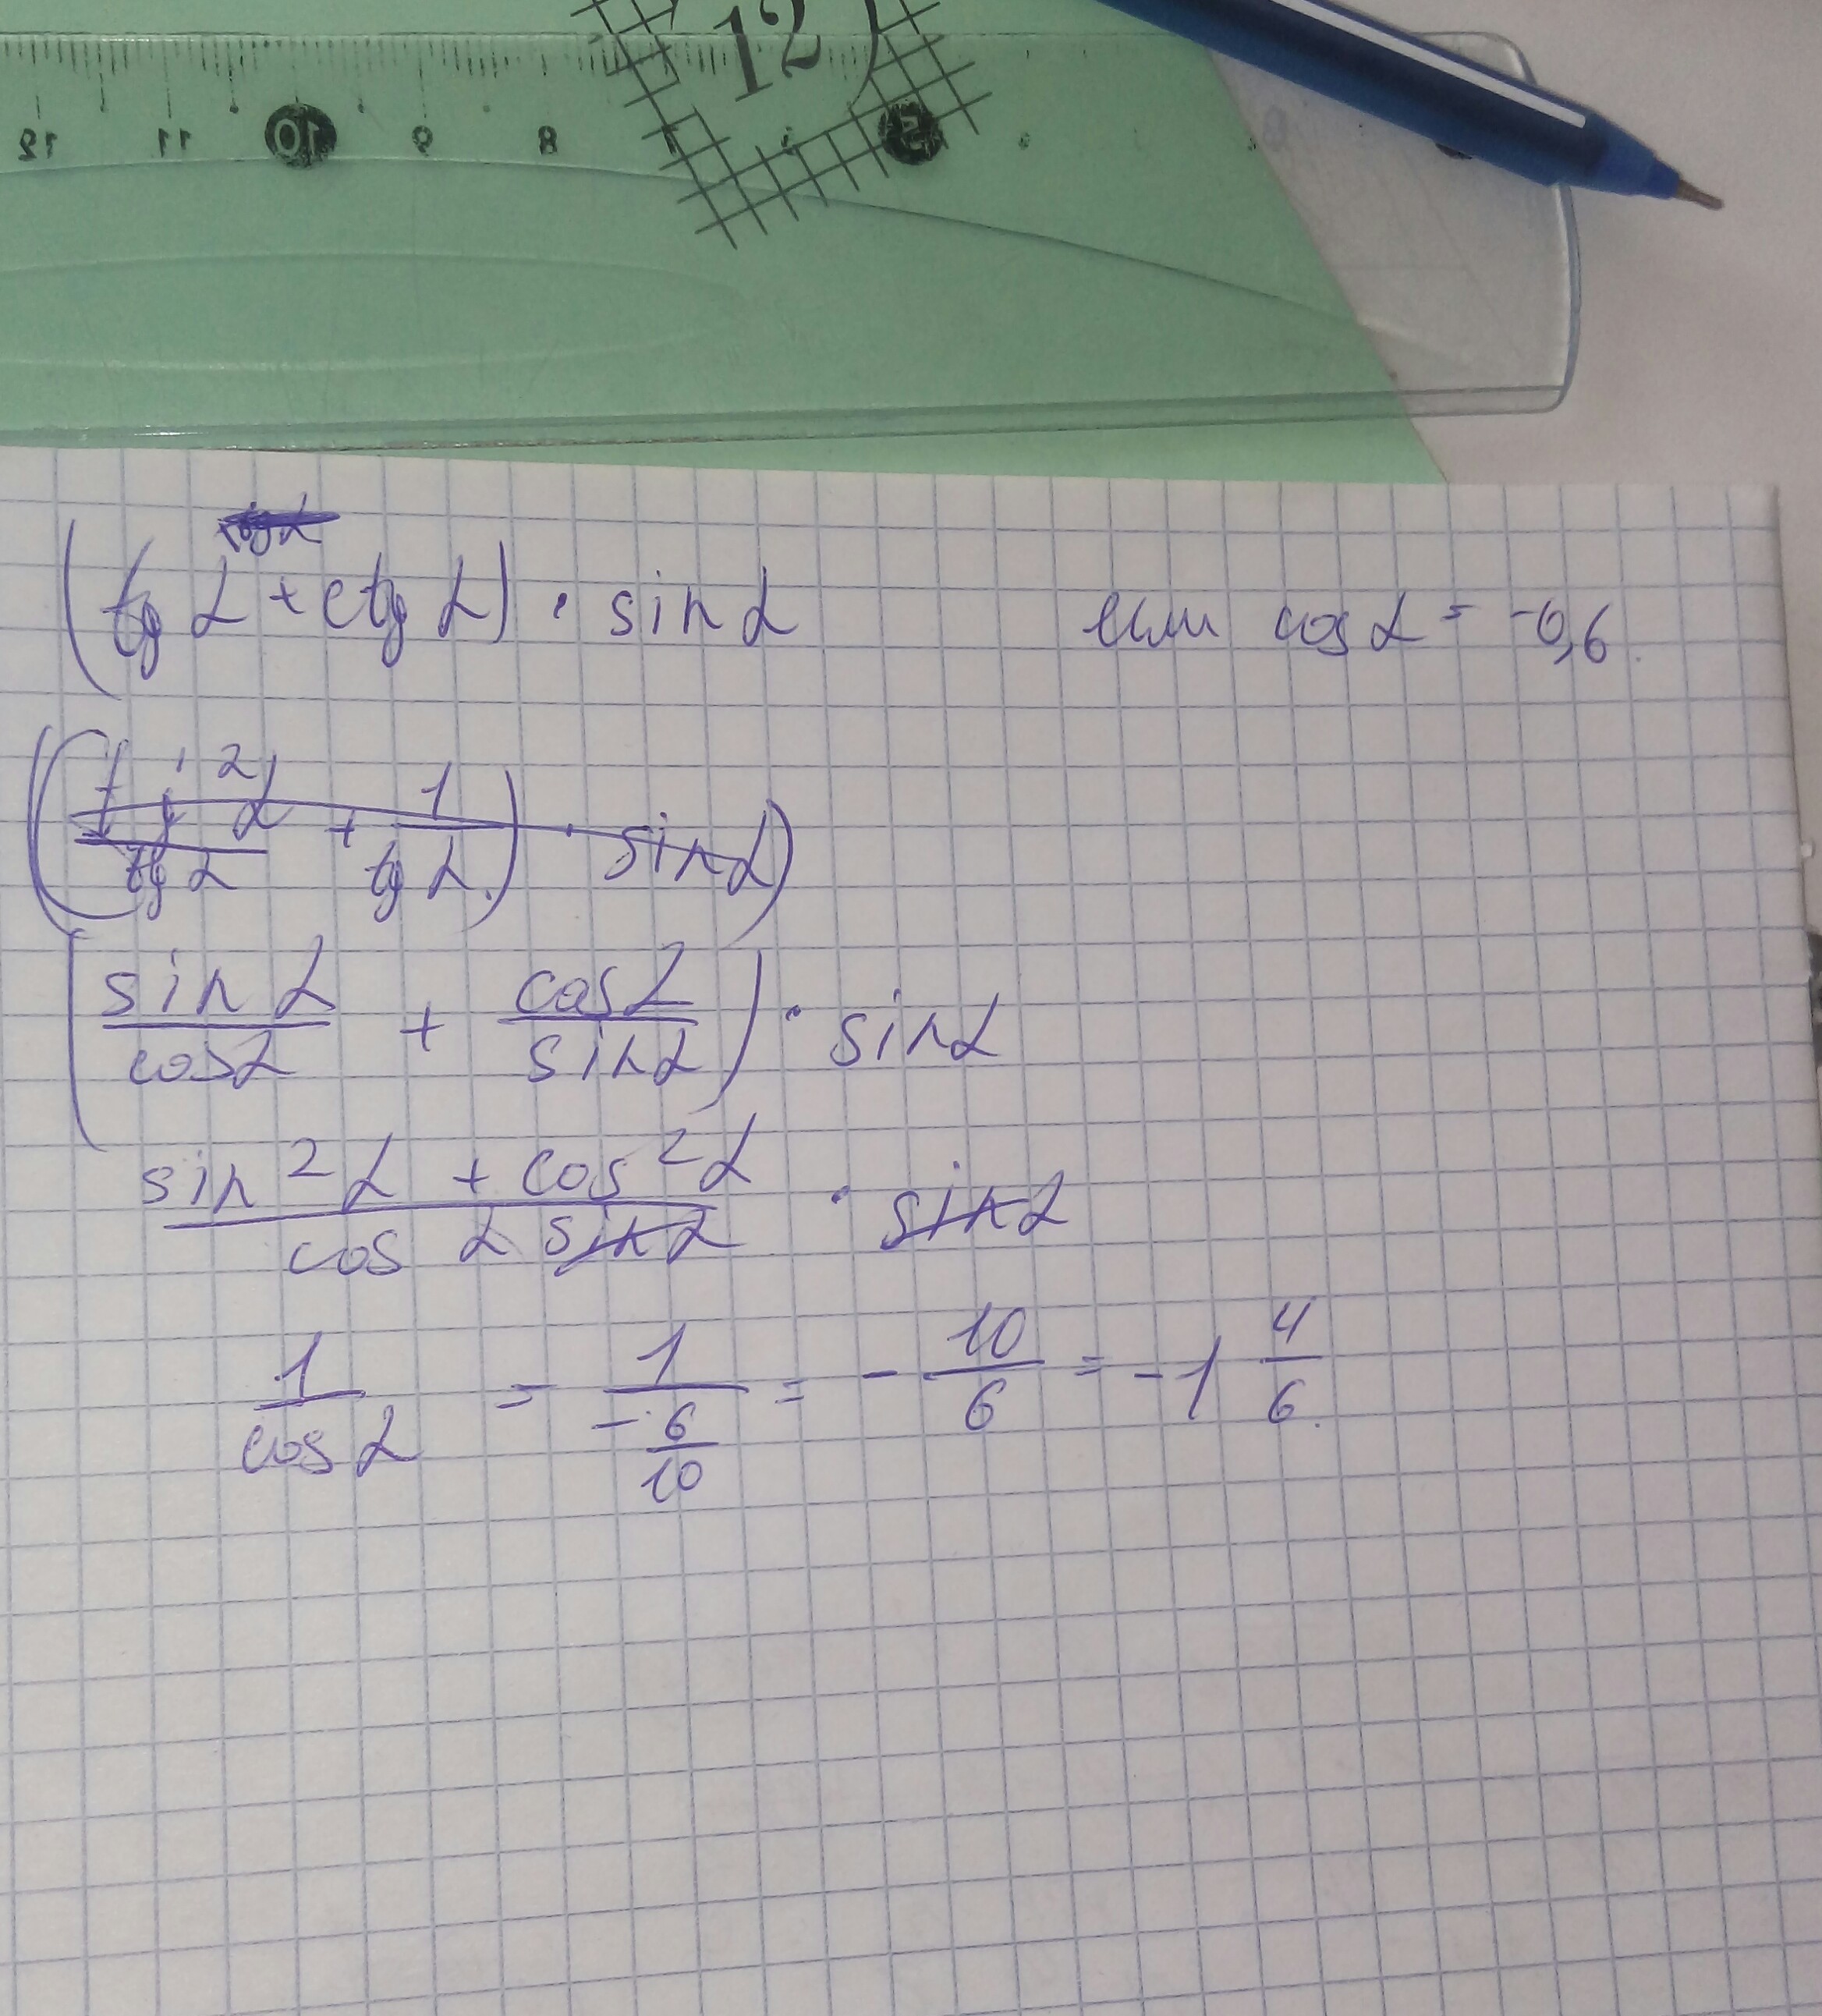 12
12 11 10 9 8 5
(tg α + ctg α) · sin α если cos α = -0,6.
((tg² α / tg α + 1 / tg α) · sin α)
(sin α / cos α + cos α / sin α) · sin α
sin² α + cos² α / cos α sin α · sin α
1 / cos α = 1 / -6/10 = - 10/6 = -1 4/6.